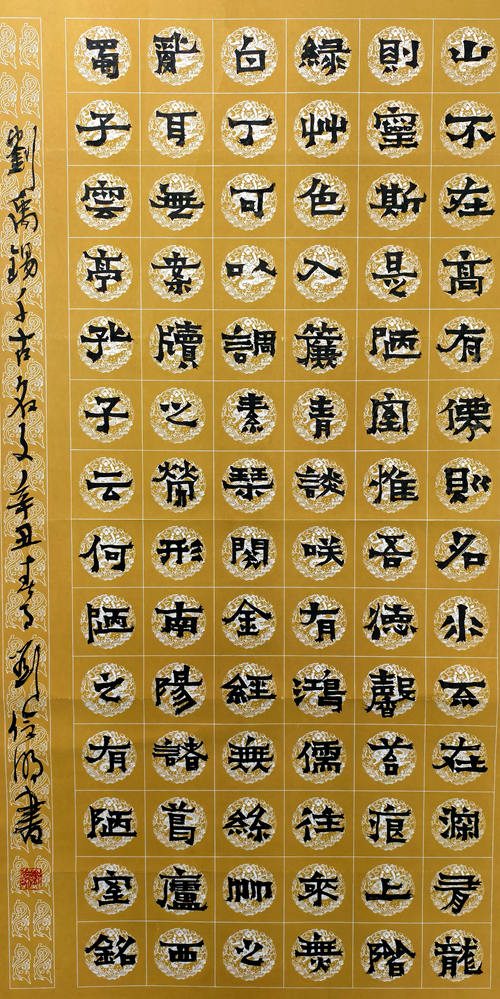 山不在高有僊則名水不在深有龍
則靈斯是陋室惟吾德馨苔痕上階
緑艸色入簾青談咲有鴻儒往來無
白丁可以調素琴閲金經無絲竹之
亂耳無案牘之勞形南陽諸葛廬西
蜀子雲亭孔子云何陋之有陋室銘
劉禹錫千古名文辛丑春月劉明書